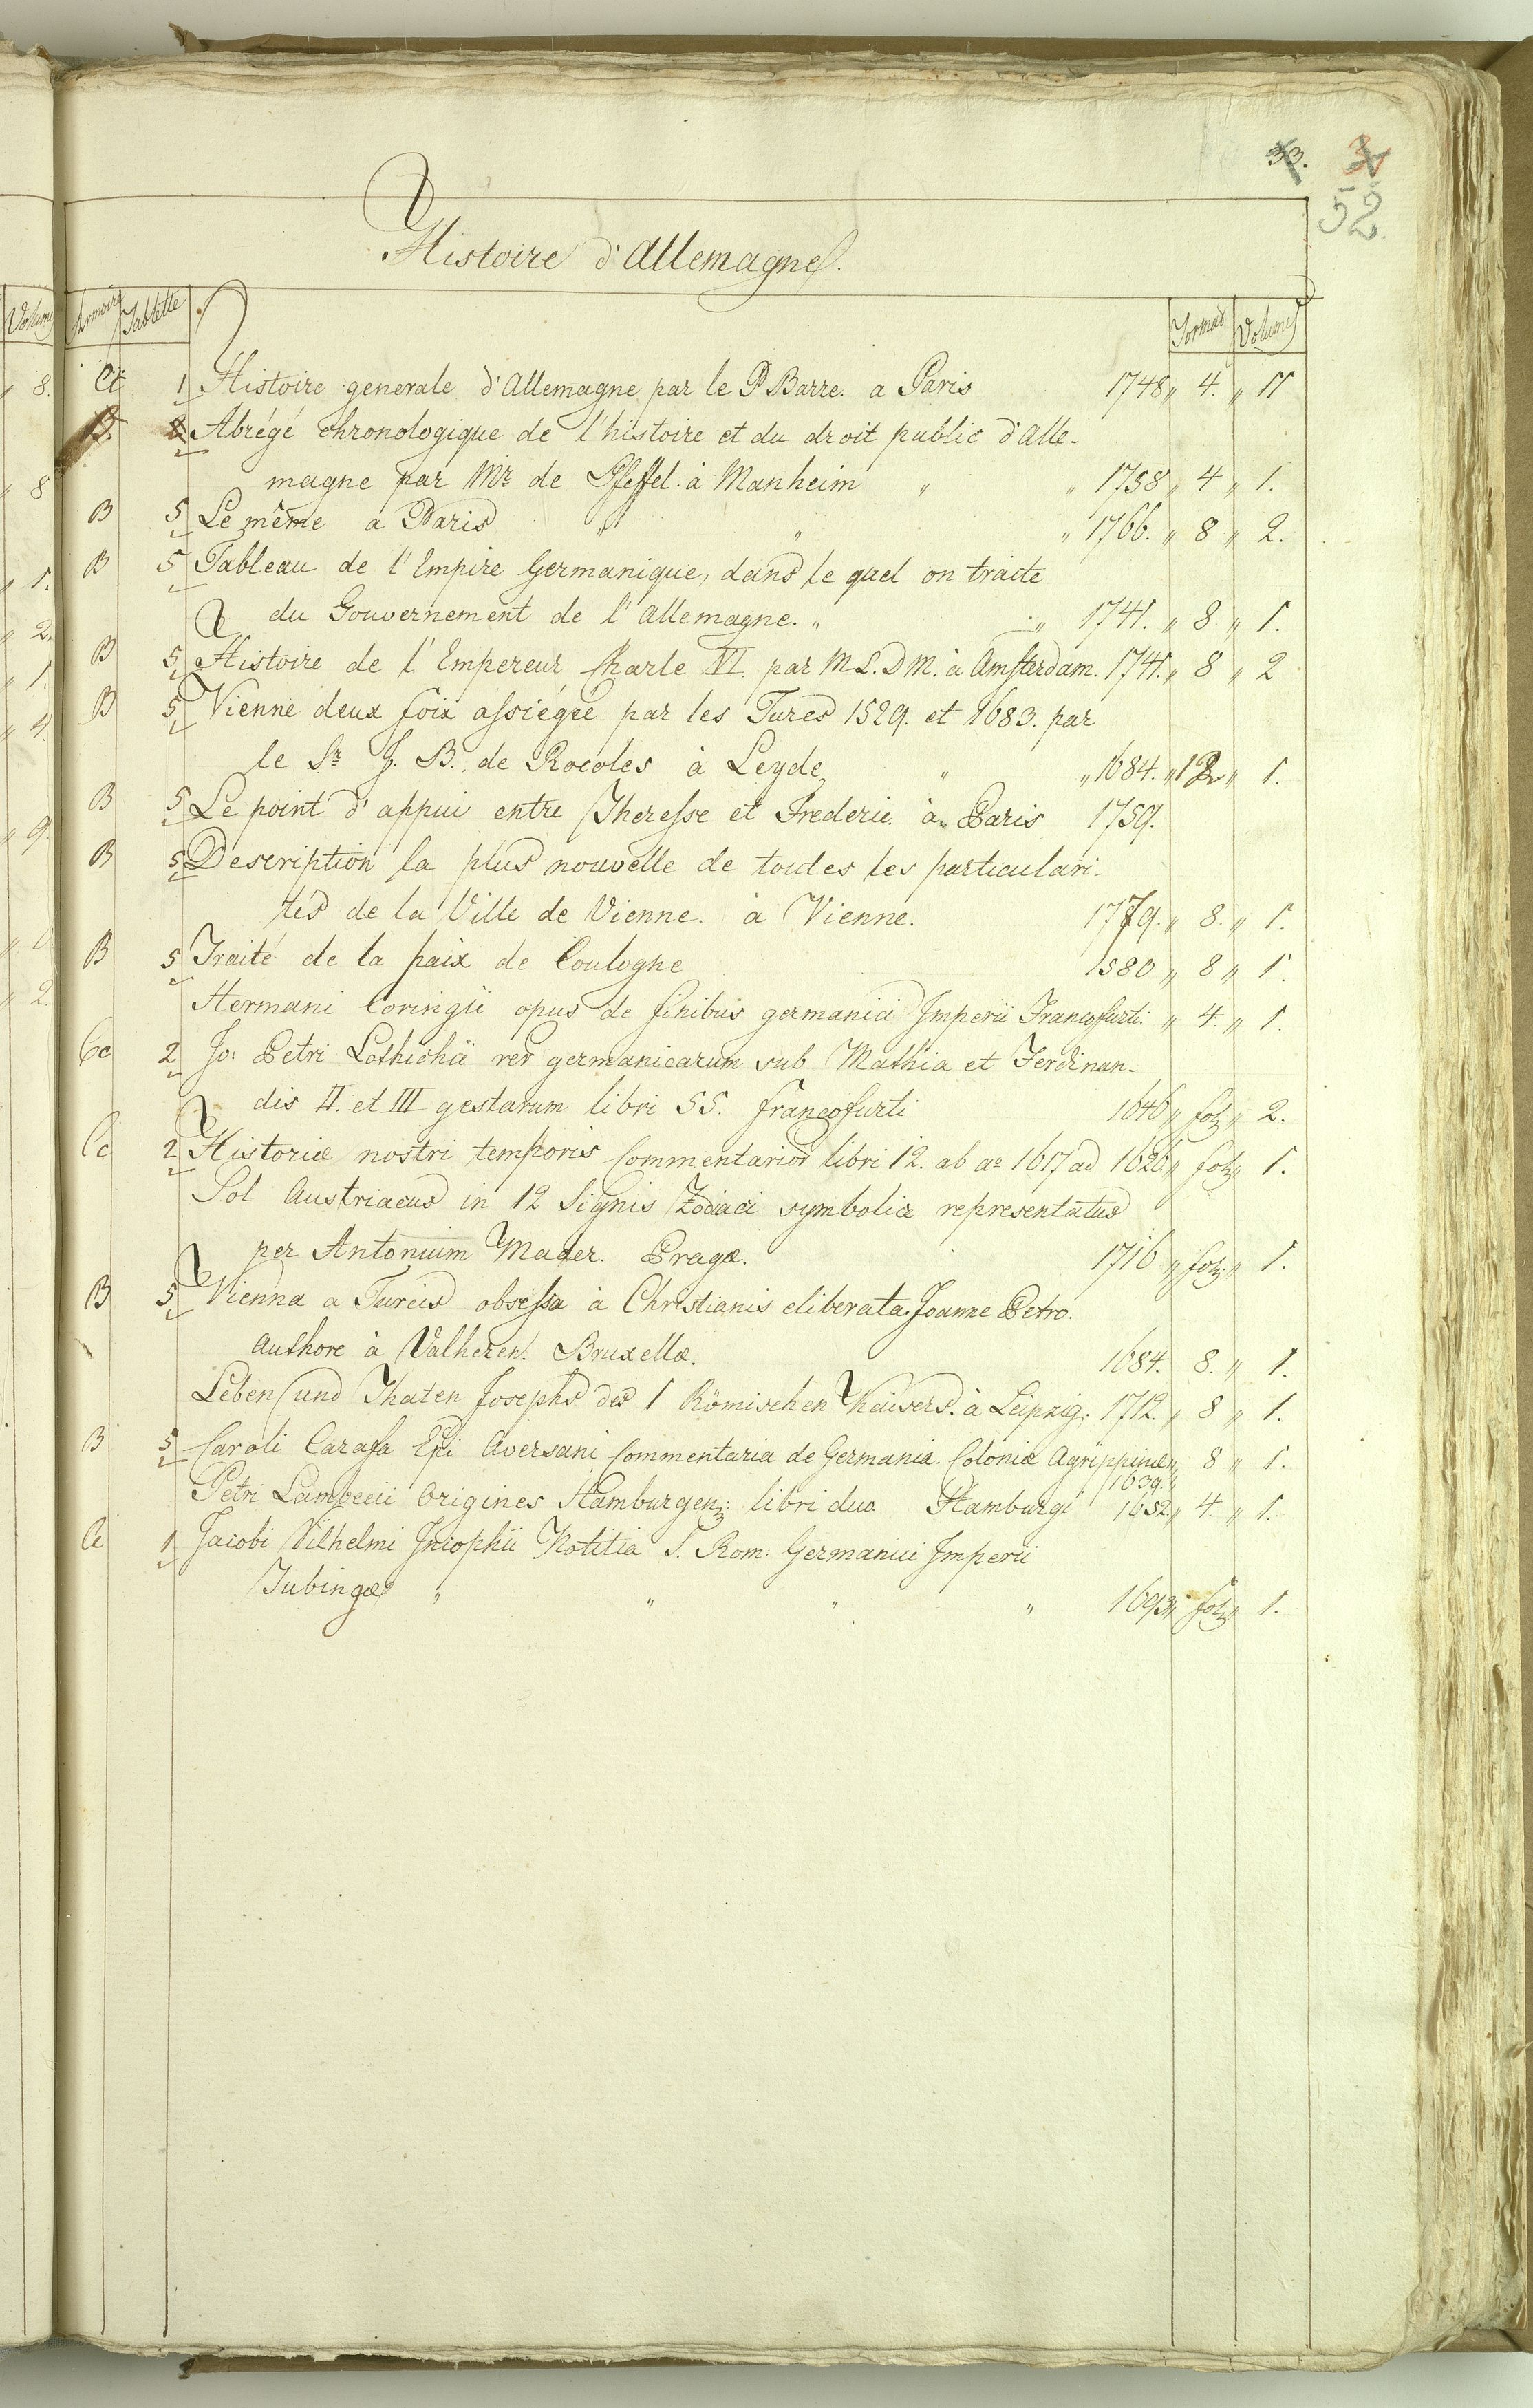 33.
52.
Histoire d'Allemagne.
Volume Armoire Tablette Format Volumes
1 Histoire generale d'Allemagne par le P Barre. a Paris 1748 " 4. " 11
Abrégé chronologique de l'histoire et du droit public d'Alle-
magne par Mr. de Pfeffel. à Manheim " " 1758 " 4 " 1.
B 5 Le même a Paris " " " 1766. " 8 " 2.
B 5 Tableau de l'Empire Germanique, dans le quel on traite
du Gouvernement de l'Allemagne. " " 1741. " 8 " 1.
B 5 Histoire de l'Empereur Charle VI. par M L. D M. à Amsterdam. 1741. " 8 " 2
B 5 Vienne deux foix assiégée par les Turcs 1529. et 1683. par
le Sr. J. B. de Rocoles à Leyde " " 1684. " 12 " 1.
B 5 Le point d'appui entre Theresse et Frederic. à Paris 1759.
B 5 Description la plus nouvelle de toutes les particulari-
tés de la Ville de Vienne. à Vienne. 1779. " 8. " 1.
B 5 Traité de la paix de Coulogne 1580 " 8 " 1.
Hermani Coringii opus de finibus germanici Imperii Francofurti. " 4. " 1.
Cc 2 Jo: Petri Lothichii rer germanicarum sub Mathia et Ferdinan-
dis II. et III gestarum libri 55. francofurti 1646 " fol " 2.
Cc 2 Historiæ nostri temporis Commentarior libri 12. ab ao 1617 ad 1626 " fol " 1.
Sol Austriacus in 12 Signis Zodiaci symbolice representatus
per Antonium Mader. Pragæ. 1716 " fol. " 1.
B 5 Vienna a Turcis obsessa à Christianis eliberata Joanne Petro.
Authore à Valheren. Bruxellæ. 1684. 8. " 1.
Leben und Thaten Josephs des 1 Römischen Kaisers. à Leipzig. 1712. " 8 " 1.
B 5 Caroli Carafa Epi Aversani Commentaria de Germania. Coloniæ Agrippinæ " 8 " 1.
1639. "
Petri Lambecii Origines Hamburgen: libri duo Hamburgi 1652 " 4. " 1.
1 Jacobi Vilhelmi Notitia S. Rom: Germanici Imperii
Tubingæ " " " " 1693 " fol " 1.